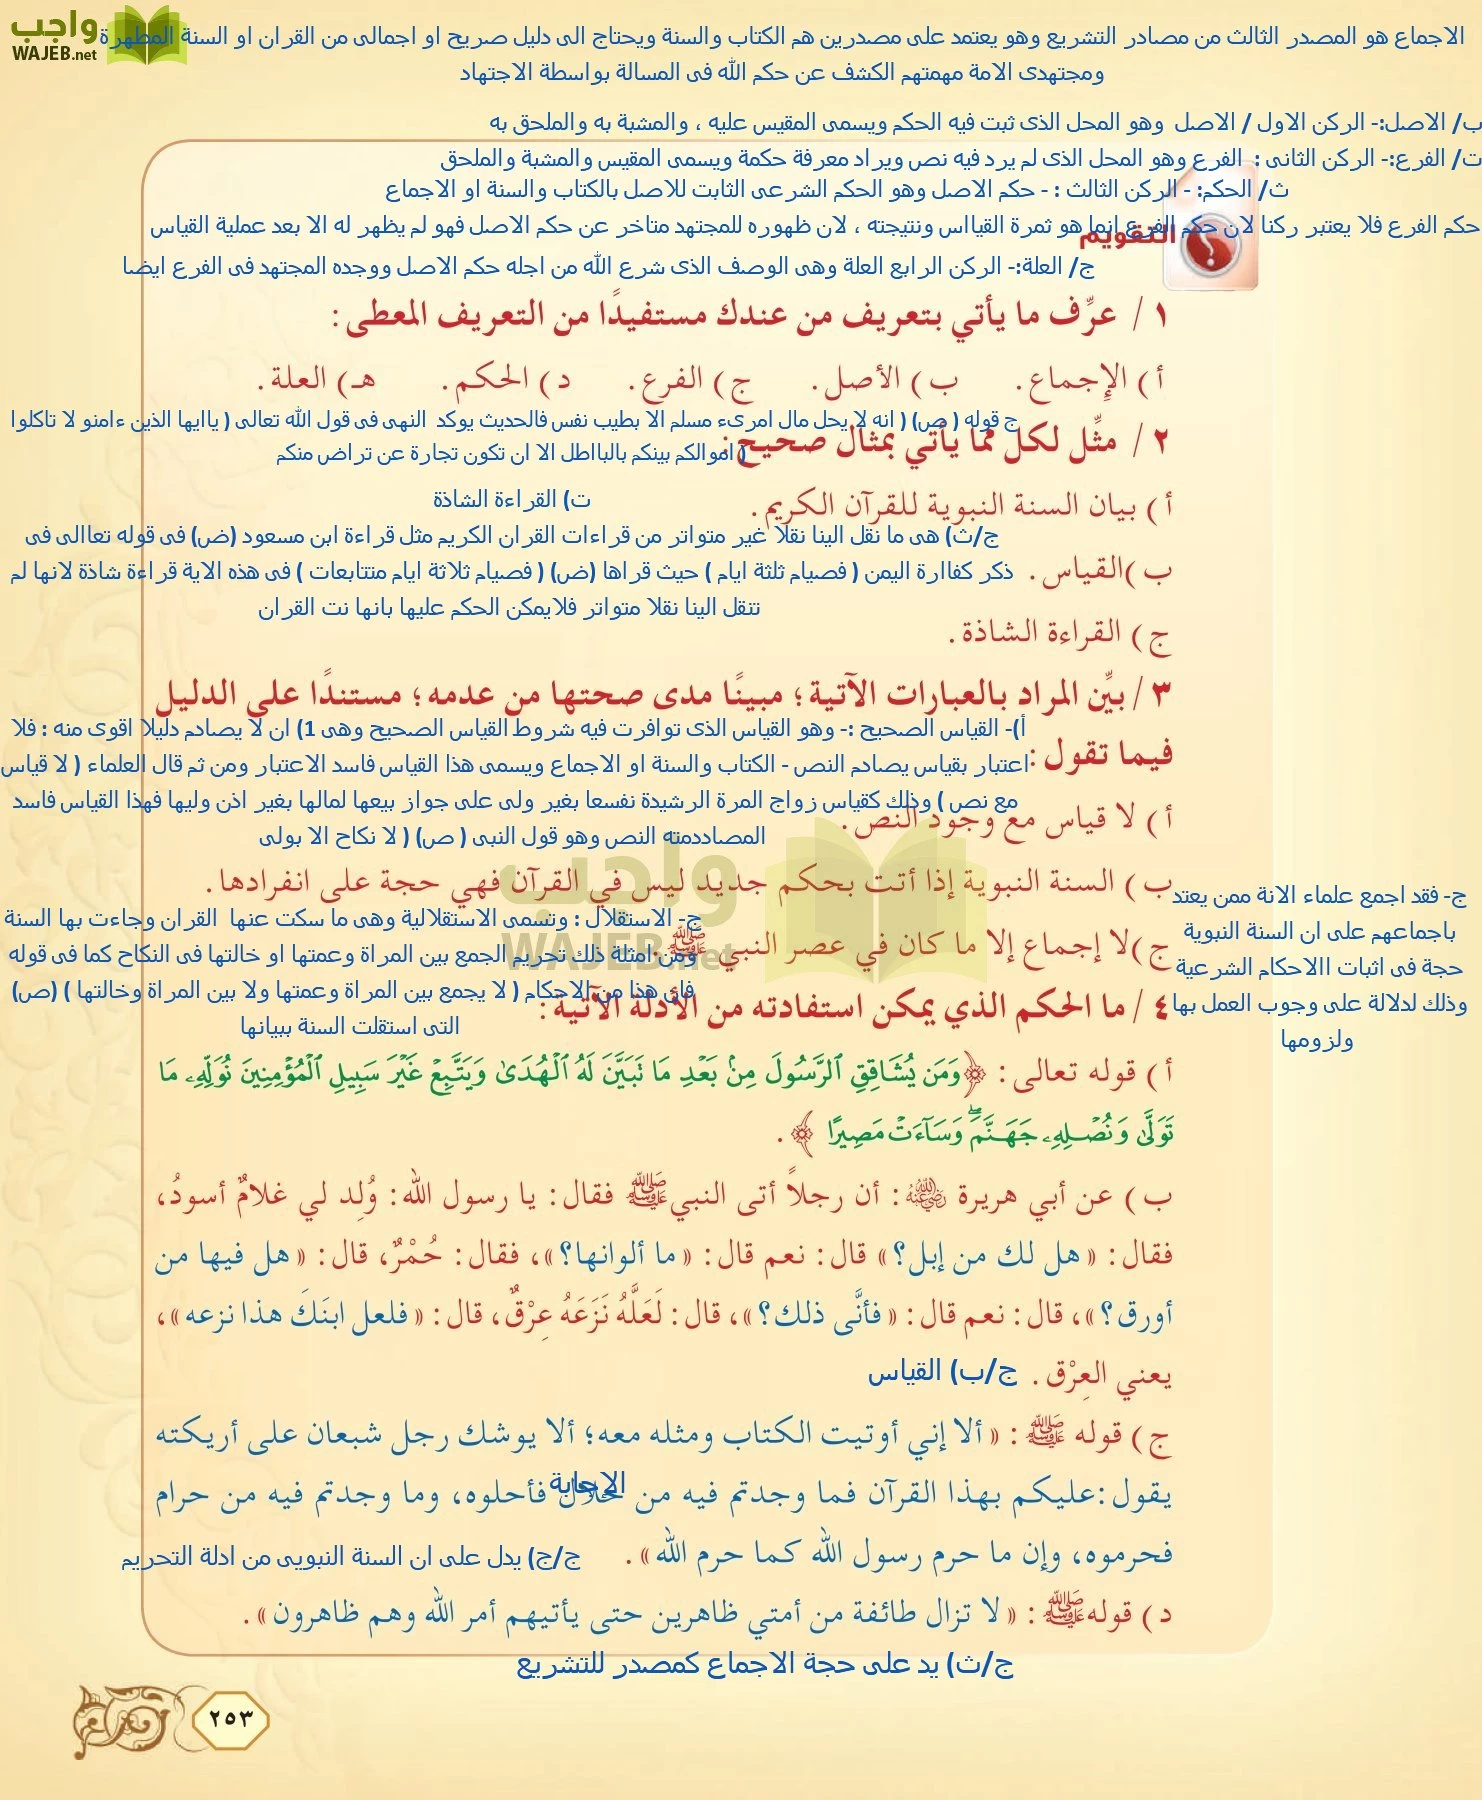 واجب
WAJEB.net
الاجماع هو المصدر الثالث من مصادر التشريع وهو يعتمد على مصدرين هم الكتاب والسنة ويحتاج الى دليل صريح او اجمالى من القران او السنة المطهرة
ومجتهدى الامة مهمتهم الكشف عن حكم الله فى المسالة بواسطة الاجتهاد
ب/ الاصل:- الركن الاول / الاصل وهو المحل الذى ثبت فيه الحكم ويسمى المقيس عليه ، والمشبة به والملحق به
ت/ الفرع:- الركن الثانى : الفرع وهو المحل الذى لم يرد فيه نص ويراد معرفة حكمة ويسمى المقيس والمشبة والملحق
ث/ الحكم: - الركن الثالث : - حكم الاصل وهو الحكم الشرعى الثابت للاصل بالكتاب والسنة او الاجماع
حكم الفرع فلا يعتبر ركنا لان حكم الفرع انما هو ثمرة القيااس ونتيجته ، لان ظهوره للمجتهد متاخر عن حكم الاصل فهو لم يظهر له الا بعد عملية القياس
التقويم
ج/ العلة:- الركن الرابع العلة وهى الوصف الذى شرع الله من اجله حكم الاصل ووجده المجتهد فى الفرع ايضا
١ / عرِّف ما يأتي بتعريف من عندك مستفيدًا من التعريف المعطى :
أ ) الإجماع . ب ) الأصل . ج ) الفرع . د ) الحكم . هـ ) العلة .
ج قوله ( ص) ( انه لا يحل مال امرىء مسلم الا بطيب نفس فالحديث يوكد النهى فى قول الله تعالى ( ياايها الذين ءامنو لا تاكلوا
٢ / مثِّل لكل مما يأتي بمثال صحيح :
اموالكم بينكم بالبااطل الا ان تكون تجارة عن تراض منكم )
أ ) بيان السنة النبوية للقرآن الكريم .
ت) القراءة الشاذة
ج/ث) هى ما نقل الينا نقلا غير متواتر من قراءات القران الكريم مثل قراءة ابن مسعود (ض) فى قوله تعاالى فى
ب )القياس .
ذكر كفاارة اليمن ( فصيام ثلثة ايام ) حيث قراها (ض) ( فصيام ثلاثة ايام متتابعات ) فى هذه الاية قراءة شاذة لانها لم
تنقل الينا نقلا متواتر فلايمكن الحكم عليها بانها نت القران
ج ) القراءة الشاذة .
٣ / بيِّن المراد بالعبارات الآتية ؛ مبينًا مدى صحتها من عدمه ؛ مستندًا على الدليل
أ)- القياس الصحيح :- وهو القياس الذى توافرت فيه شروط القياس الصحيح وهى 1) ان لا يصادم دليلا اقوى منه : فلا
فيما تقول :
اعتبار بقياس يصادم النص - الكتاب والسنة او الاجماع ويسمى هذا القياس فاسد الاعتبار ومن ثم قال العلماء ( لا قياس
مع نص ) وذلك كقياس زواج المرة الرشيدة نفسعا بغير ولى على جواز بيعها لمالها بغير اذن وليها فهذا القياس فاسد
أ ) لا قياس مع وجود النص .
المصاددمته النص وهو قول النبى ( ص) ( لا نكاح الا بولى
واجب
ب ) السنة النبوية إذا أتت بحكم جديد ليس في القرآن فهي حجة على انفرادها .
ج- فقد اجمع علماء الانة ممن يعتد
باجماعهم على ان السنة النبوية
حجة فى اثبات االاحكام الشرعية
وذلك لدلالة على وجوب العمل بها
ولزومها
ج- الاستقلال : وتسمى الاستقلالية وهى ما سكت عنها القران وجاءت بها السنة
WAJEB.net
ج )لا إجماع إلا ما كان في عصر النبي ﷺ .
ومن امثلة ذلك تحريم الجمع بين المراة وعمتها او خالتها فى النكاح كما فى قوله
(ص) ( لا يجمع بين المراة وعمتها ولا بين المراة وخالتها ) فان هذا من الاحكام
٤ / ما الحكم الذي يمكن استفادته من الأدلة الآتية :
التى استقلت السنة ببيانها
أ ) قوله تعالى : ﴿وَمَن يُشَاقِقِ ٱلرَّسُولَ مِنۢ بَعْدِ مَا تَبَيَّنَ لَهُ ٱلْهُدَىٰ وَيَتَّبِعْ غَيْرَ سَبِيلِ ٱلْمُؤْمِنِينَ نُوَلِّهِۦ مَا
تَوَلَّىٰ وَنُصْلِهِۦ جَهَنَّمَ ۖ وَسَآءَتْ مَصِيرًا ﴾ .
ب ) عن أبي هريرة رضي الله عنه : أن رجلاً أتى النبي ﷺ فقال : يا رسول الله : وُلِد لي غلامٌ أسودُ،
فقال : « هل لك من إبل ؟ » قال : نعم قال : « ما ألوانها ؟ »، فقال : حُمْرٌ، قال : « هل فيها من
أورق ؟ »، قال : نعم قال : « فأنَّى ذلك ؟ »، قال : لَعَلَّهُ نَزَعَهُ عِرْقٌ، قال : « فلعل ابنَكَ هذا نزعه »،
يعني العِرْق . ج/ب) القياس
ج ) قوله ﷺ : « ألا إني أوتيت الكتاب ومثله معه ؛ ألا يوشك رجل شبعان على أريكته
الاجابة
يقول :عليكم بهذا القرآن فما وجدتم فيه من حلال فأحلوه، وما وجدتم فيه من حرام
فحرموه، وإن ما حرم رسول الله كما حرم الله » . ج/ج) يدل على ان السنة النبويى من ادلة التحريم
د ) قوله ﷺ : « لا تزال طائفة من أمتي ظاهرين حتى يأتيهم أمر الله وهم ظاهرون » .
ج/ث) يد على حجة الاجماع كمصدر للتشريع
٢٥٣